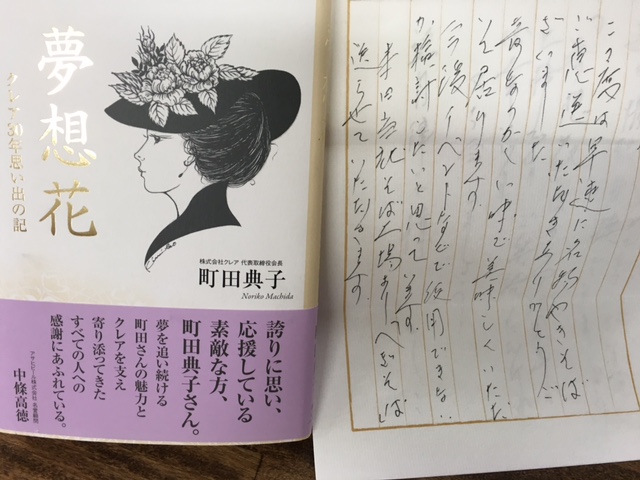 夢想花
クレア30年思い出の記
株式会社クレア 代表取締役会長
町田典子
Noriko Machida
誇りに思い、
応援している
素敵な方、
町田典子さん。
夢を追い続ける
町田さんの魅力と
クレアを支え
寄り添ってきた
すべての人への
感謝にあふれている。
アサヒビール株式会社 名誉顧問
中條高徳
この度は早速に名物やきそば
ご恵送いただきありがとうご
ざいました
昔なつかしい味で美味しくいただ
いて居ります
今後イベントなどで使用できない
か検討したいと思っています。
本日当社そば工場よりへぎそば
送らせていただきます